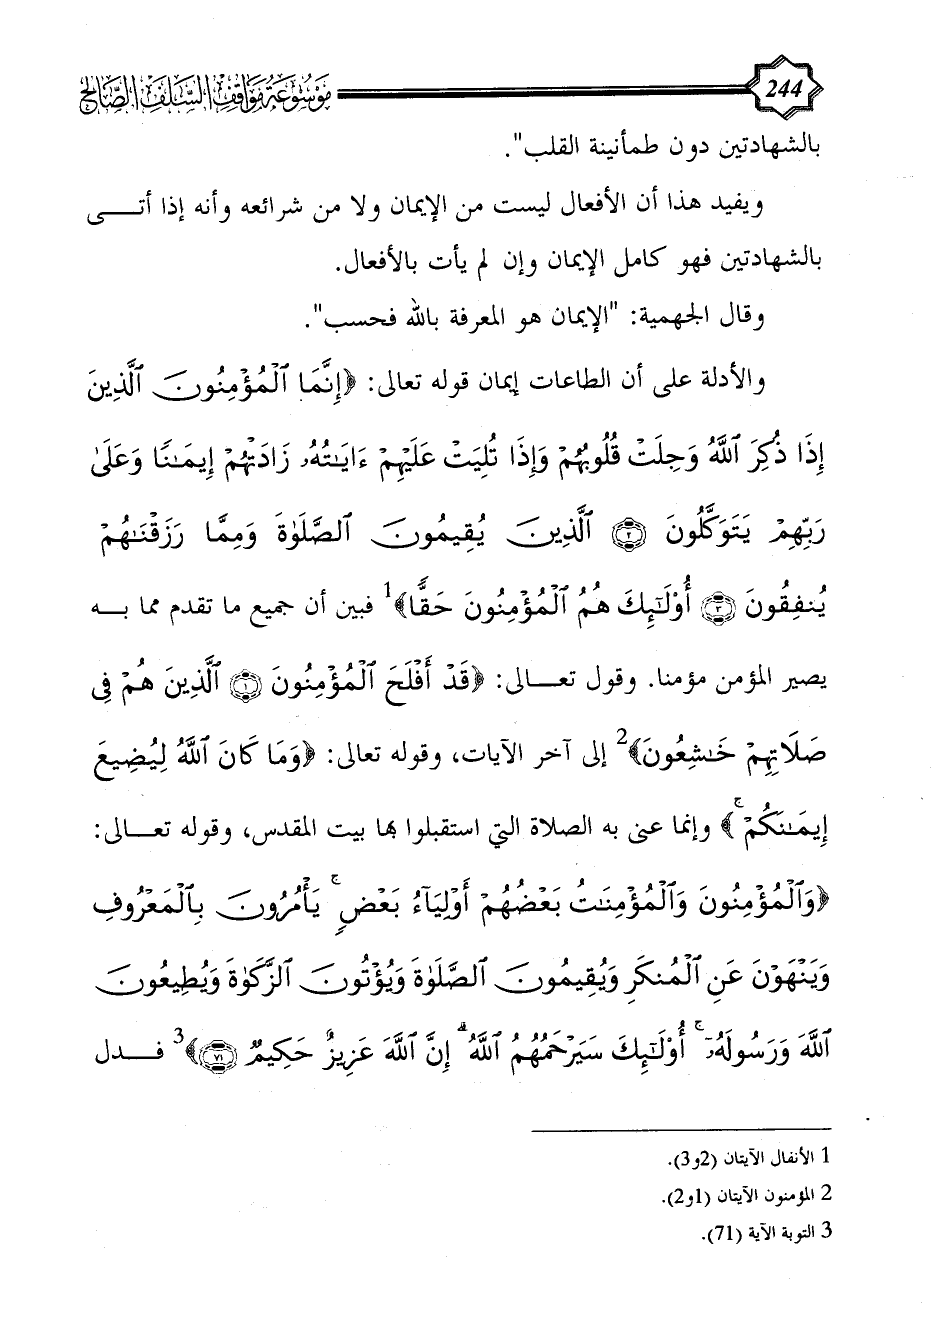 244 موسوعة مواقف السلف الصالح
بالشهادتين دون طمأنينة القلب".
ويفيد هذا أن الأفعال ليست من الإيمان ولا من شرائعه وأنه إذا أتـــى
بالشهادتين فهو كامل الإيمان وإن لم يأت بالأفعال.
وقال الجهمية: "الإيمان هو المعرفة بالله فحسب".
والأدلة على أن الطاعات إيمان قوله تعالى: ﴿إِنَّمَا ٱلْمُؤْمِنُونَ ٱلَّذِينَ
إِذَا ذُكِرَ ٱللَّهُ وَجِلَتْ قُلُوبُهُمْ وَإِذَا تُلِيَتْ عَلَيْهِمْ ءَايَـٰتُهُۥ زَادَتْهُمْ إِيمَـٰنًا وَعَلَىٰ
رَبِّهِمْ يَتَوَكَّلُونَ ۝٢ ٱلَّذِينَ يُقِيمُونَ ٱلصَّلَوٰةَ وَمِمَّا رَزَقْنَـٰهُمْ
يُنفِقُونَ ۝٣ أُوْلَـٰٓئِكَ هُمُ ٱلْمُؤْمِنُونَ حَقًّا﴾1 فبين أن جميع ما تقدم مما بـــه
يصير المؤمن مؤمنا. وقول تعـــالى: ﴿قَدْ أَفْلَحَ ٱلْمُؤْمِنُونَ ۝١ ٱلَّذِينَ هُمْ فِى
صَلَاتِهِمْ خَـٰشِعُونَ﴾2 إلى آخر الآيات، وقوله تعالى: ﴿وَمَا كَانَ ٱللَّهُ لِيُضِيعَ
إِيمَـٰنَكُمْ ۚ﴾ وإنما عنى به الصلاة التي استقبلوا بها بيت المقدس، وقوله تعـــالى:
﴿وَٱلْمُؤْمِنُونَ وَٱلْمُؤْمِنَـٰتُ بَعْضُهُمْ أَوْلِيَآءُ بَعْضٍ ۚ يَأْمُرُونَ بِٱلْمَعْرُوفِ
وَيَنْهَوْنَ عَنِ ٱلْمُنكَرِ وَيُقِيمُونَ ٱلصَّلَوٰةَ وَيُؤْتُونَ ٱلزَّكَوٰةَ وَيُطِيعُونَ
ٱللَّهَ وَرَسُولَهُۥٓ ۚ أُوْلَـٰٓئِكَ سَيَرْحَمُهُمُ ٱللَّهُ ۗ إِنَّ ٱللَّهَ عَزِيزٌ حَكِيمٌ ۝٧١﴾3 فـــدل
1 الأنفال الآيتان (2و3).
2 المؤمنون الآيتان (1و2).
3 التوبة الآية (71).